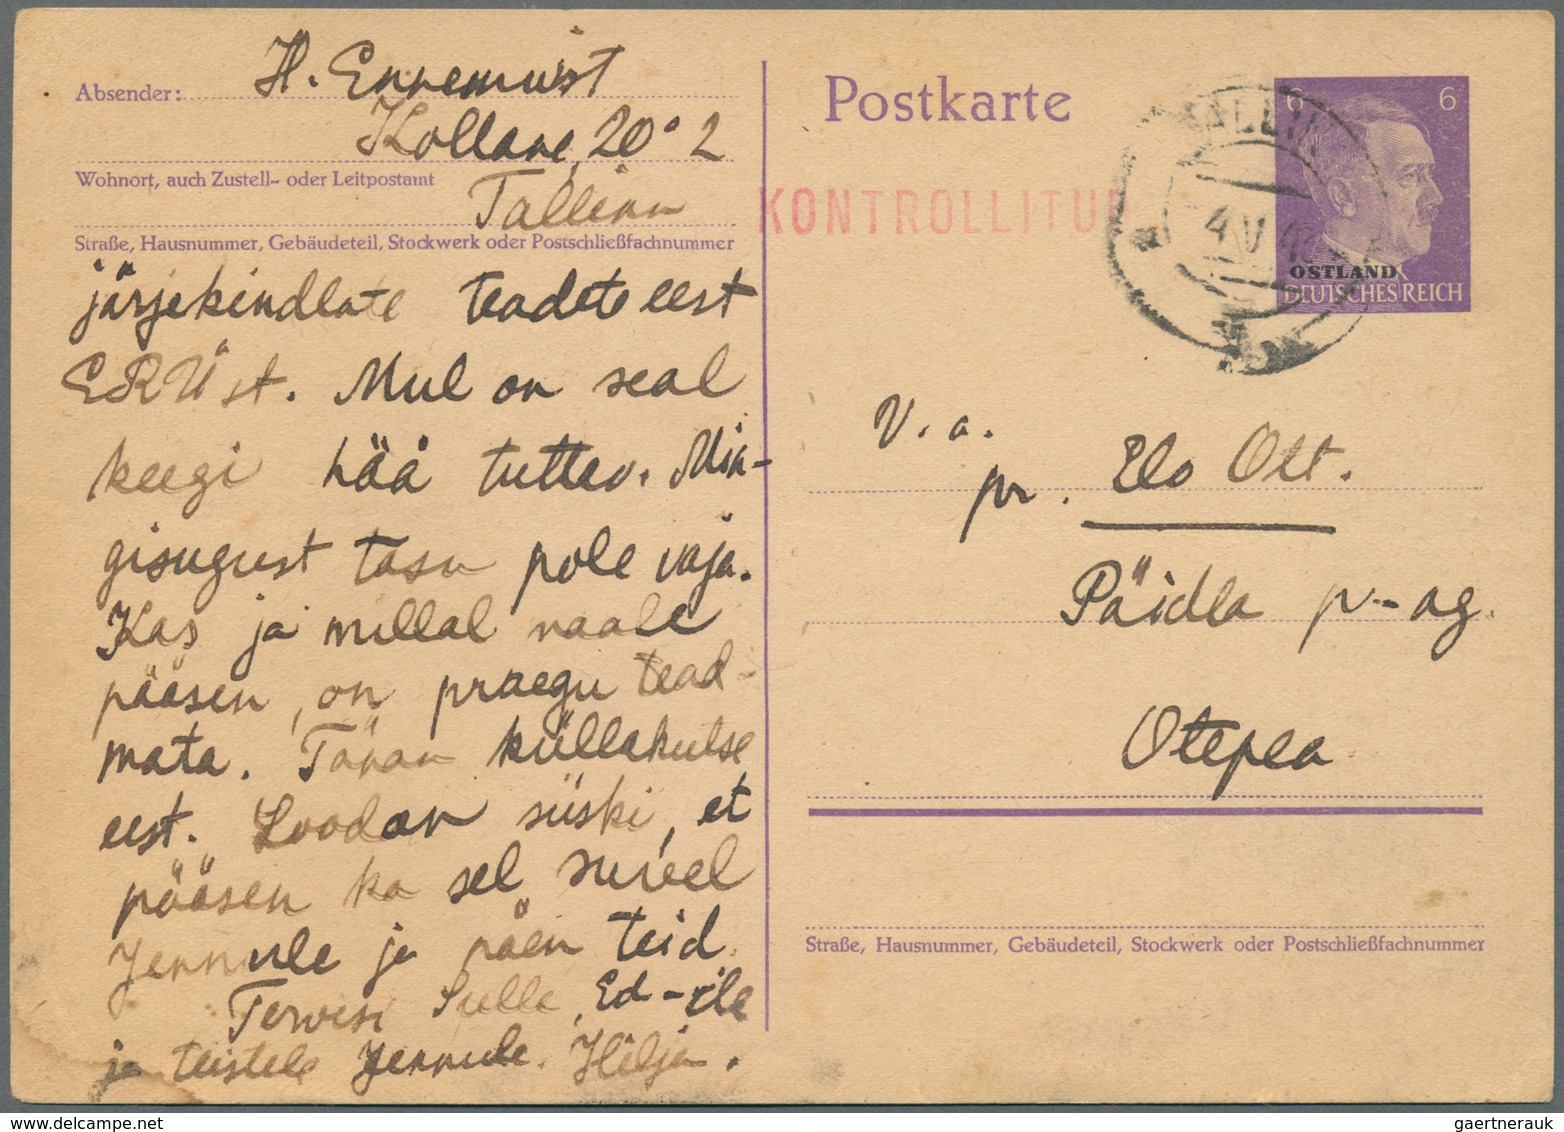 Absender: H. Ennemuist
Kollane 20-2
Wohnort, auch Zustell- oder Leitpostamt
Tallinn
Straße, Hausnummer, Gebäudeteil, Stockwerk oder Postschließfachnummer
järjekindlate teadete eest
ERÜst. Mul on seal
keegi hää tuttav. Min-
gisugust tasu pole vaja.
Kas ja millal maale
pääsen, on praegu tead-
mata. Tänan küllakutse
eest. Loodan siiski, et
pääsen ka sel suvel
Jennule ja näen teid.
Tervisi Sulle, Ed-ile
ja teistele Jennule. Hilja.
Postkarte
6 6
TALLINN
4 V 43
KONTROLLITUD
OSTLAND
DEUTSCHES REICH
V. a.
pr. Elo Ott.
Päidla p-ag.
Otepea
Straße, Hausnummer, Gebäudeteil, Stockwerk oder Postschließfachnummer
gaertnerauk